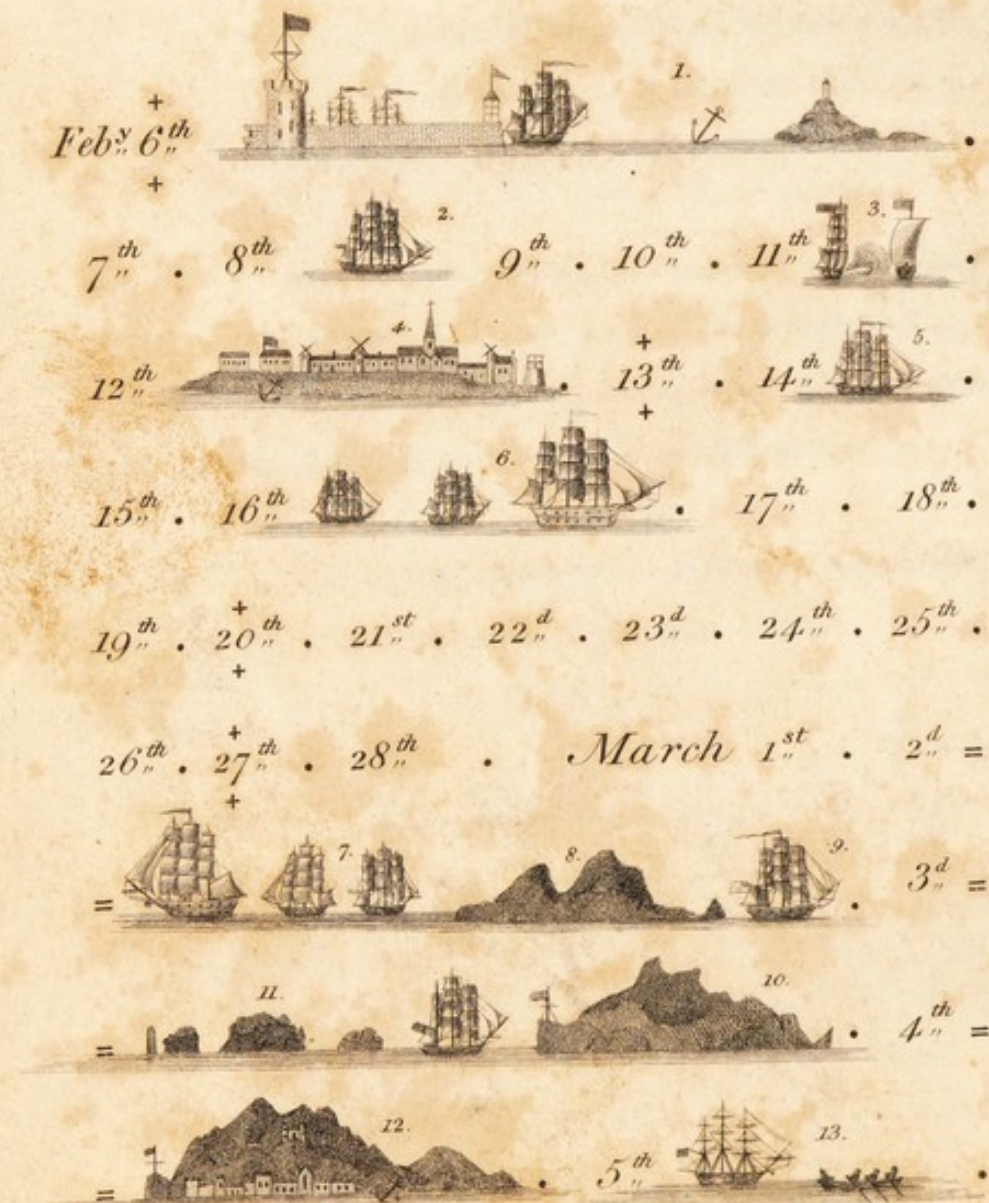 1.
+
Feb.y 6.th .
+
7.th . 8.th 2. 9.th . 10.th . 11.th 3. .
12.th 4. . + 13.th + . 14.th 5. .
15.th . 16.th 6. . 17.th . 18.th .
19.th . + 20.th + . 21.st . 22.d . 23.d . 24.th . 25.th .
26.th . + 27.th + . 28.th . . March 1.st . 2.d =
= 7. 8. 9. . 3.d =
= 11. 10. . 4.th =
= 12. . 5.th 13. .